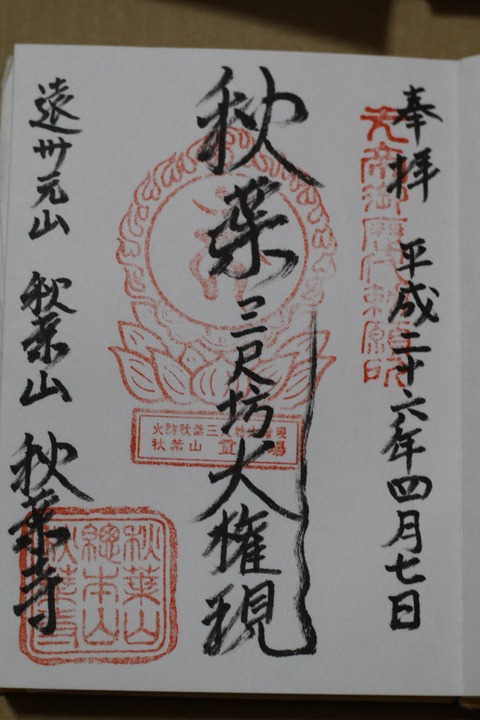 奉拝 平成二十六年四月七日
秋葉三尺坊大権現
火防秋葉三
秋葉山
遠州元山 秋葉山 秋葉寺
秋葉山
總本山
秋葉寺